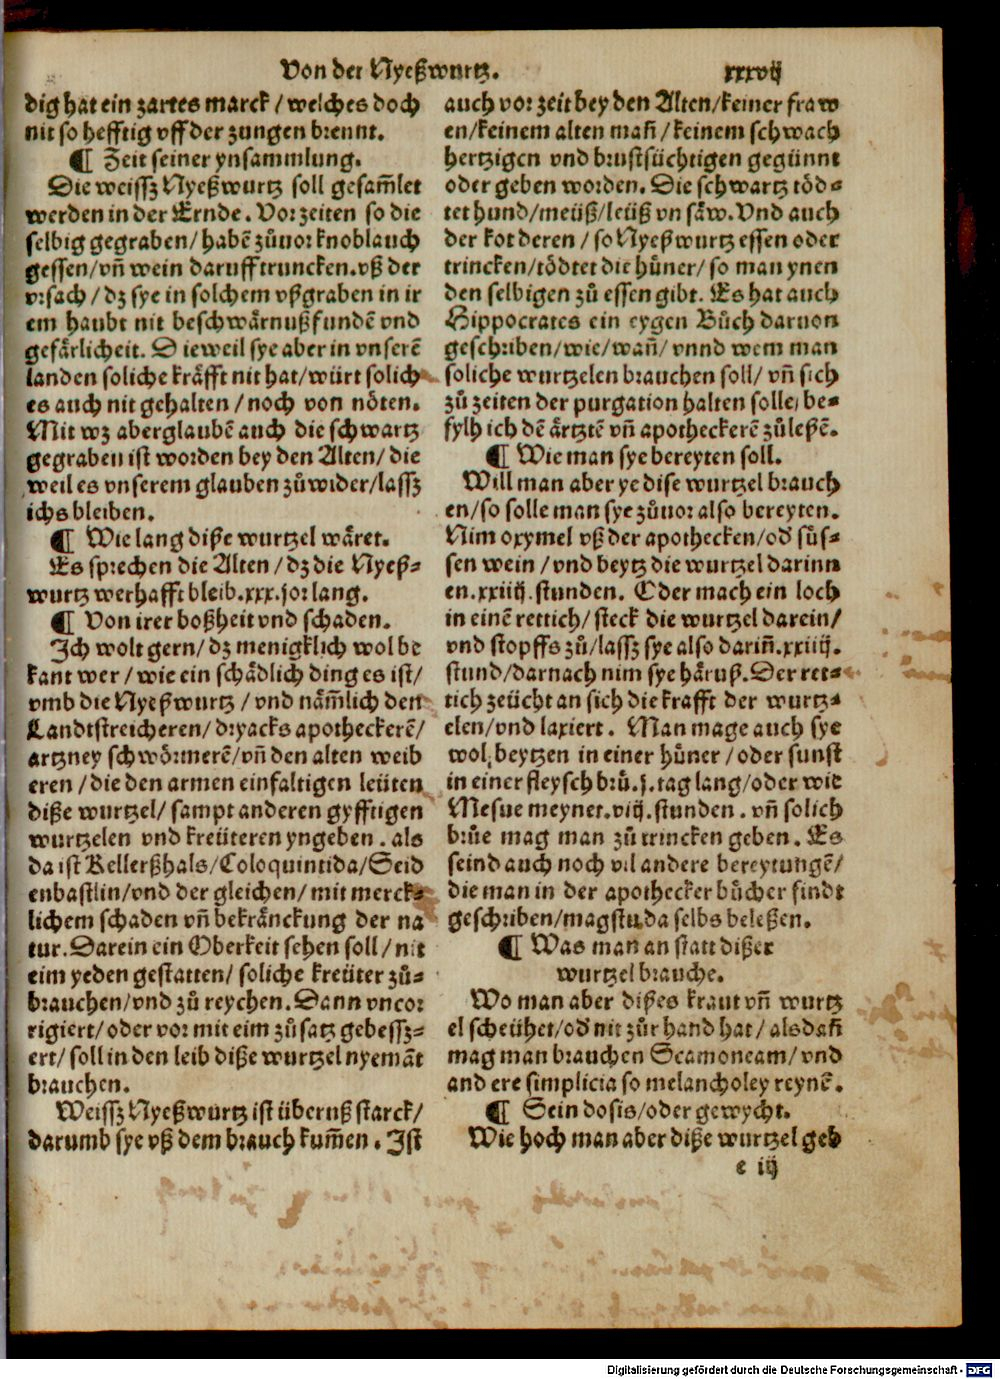 Von der Nyeßwurtz. xxxvij
dig hat ein zartes marck / welches doch
nit so hefftig vff der zungen brennt.
¶ Zeit seiner ynsammlung.
Die weissz Nyeßwurtz soll gesam̄let
werden in der Ernde. Vor zeiten so die
selbig gegraben / habē zůuor knoblauch
gessen / vn̄ wein daruff truncken. vß der
vrsach / dz sye in solchem vßgraben in ir
em haubt nit beschwårnuß fundē vnd
gefårlicheit. Dieweil sye aber in vnserē
landen soliche kråfft nit hat / würt solich
es auch nit gehalten / noch von nöten.
Mit wz aberglaubē auch die schwartz
gegraben ist worden bey den Alten / die
weil es vnserem glauben zůwider / lassz
ichs bleiben.
¶ Wie lang diße wurtzel wåret.
Es sprechen die Alten / dz die Nyeß⸗
wurtz werhafft bleib .xxx. jor lang.
¶ Von irer boßheit vnd schaden.
Ich wolt gern / dz menigklich wol be
kant wer / wie ein schådlich ding es ist /
vmb die Nyeßwurtz / vnd nåm̄lich den
Landtstreicheren / dryacks apotheckerē /
artzney schwörmerē / vn̄ den alten weib
eren / die den armen einfaltigen leüten
diße wurtzel / sampt anderen gyfftigen
wurtzelen vnd kreüteren yngeben. als
da ist Kellerßhals / Coloquintida / Seid
enbastlin / vnd der gleichen / mit merck⸗
lichem schaden vn̄ bekrånckung der na
tur. Darein ein Oberkeit sehen soll / nit
eim yeden gestatten / soliche kreüter zů⸗
brauchen / vnd zů reychen. Dann vncor
rigiert / oder vor mit eim zůsatz gebessz⸗
ert / soll in den leib diße wurtzel nyemāt
brauchen.
Weissz Nyeßwurtz ist überuß starck /
darumb sye vß dem brauch kum̄en. Ist
auch vor zeit bey den Alten / keiner fraw
en / keinem alten man̄ / keinem schwach
hertzigen vnd brustsüchtigen gegünnt
oder geben worden. Die schwartz töd⸗
tet hund / meüß / leüß vn såw. Vnd auch
der kot deren / so Nyeßwurtz essen oder
trincken / tödtet die hůner / so man ynen
den selbigen zů essen gibt. Es hat auch
Hippocrates ein eygen Bůch daruon
geschriben / wie / wan̄ / vnnd wem man
soliche wurtzelen brauchen soll / vn̄ sich
zů zeiten der purgation halten solle / be⸗
fylh ich dē årtztē vn̄ apotheckerē zůleßē.
¶ Wie man sye bereyten soll.
Will man aber ye dise wurtzel brauch
en / so solle man sye zůuor also bereyten.
Nim oxymel vß der apothecken / od' sůs⸗
sen wein / vnd beytz die wurtzel darinn
en .xxiiij. stunden. Oder mach ein loch
in einē rettich / steck die wurtzel darein /
vnd stopffs zů / lassz sye also darin̄ .xxiiij.
stund / darnach nim sye håruß. Der ret⸗
tich zeücht an sich die krafft der wurtz⸗
elen / vnd laxiert. Man mage auch sye
wol beytzen in einer hůner / oder sunst
in einer fleysch brů .j. tag lang / oder wie
Mesue meynet .viij. stunden. vn̄ solich
brůe mag man zů trincken geben. Es
seind auch noch vil andere bereytungē /
die man in der apothecker bůcher findt
geschriben / magstu da selbs beleßen.
¶ Was man an statt dißer
wurtzel brauche.
Wo man aber dißes kraut vn̄ wurtz
el scheühet / od' nit zůr hand hat / alsdan̄
mag man brauchen Scamoneam / vnd
andere simplicia so melancholey reynē.
¶ Sein dosis / oder gewycht.
Wie hoch man aber diße wurtzel geb
e iij
Digitalisierung gefördert durch die Deutsche Forschungsgemeinschaft - DFG